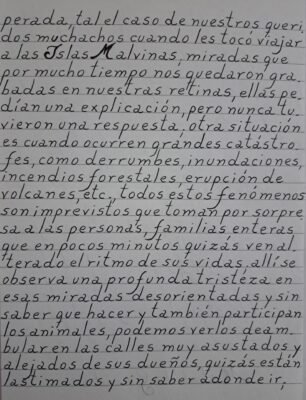 perada, tal el caso de nuestros queri,
dos muchachos cuando les tocó viajar
a las Islas Malvinas, miradas que
por mucho tiempo nos quedaron gra,
badas en nuestras retinas, ellas pe,
dían una explicación, pero nunca tu,
vieron una respuesta, otra situación
es cuando ocurren grandes catástro,
fes, como derrumbes, inundaciones,
incendios forestales, erupción de
volcanes, etc., todos estos fenómenos
son imprevistos que toman por sorpre,
sa a las personas, familias enteras
que en pocos minutos quizás ven al,
terado el ritmo de sus vidas, allí se
observa una profunda tristéza en
esas miradas desorientadas y sin
saber que hacer y también participan
los animales, podemos verlos deam,
bular en las calles muy asustados y
alejados de sus dueños, quizás están
lastimados y sin saber adonde ir,